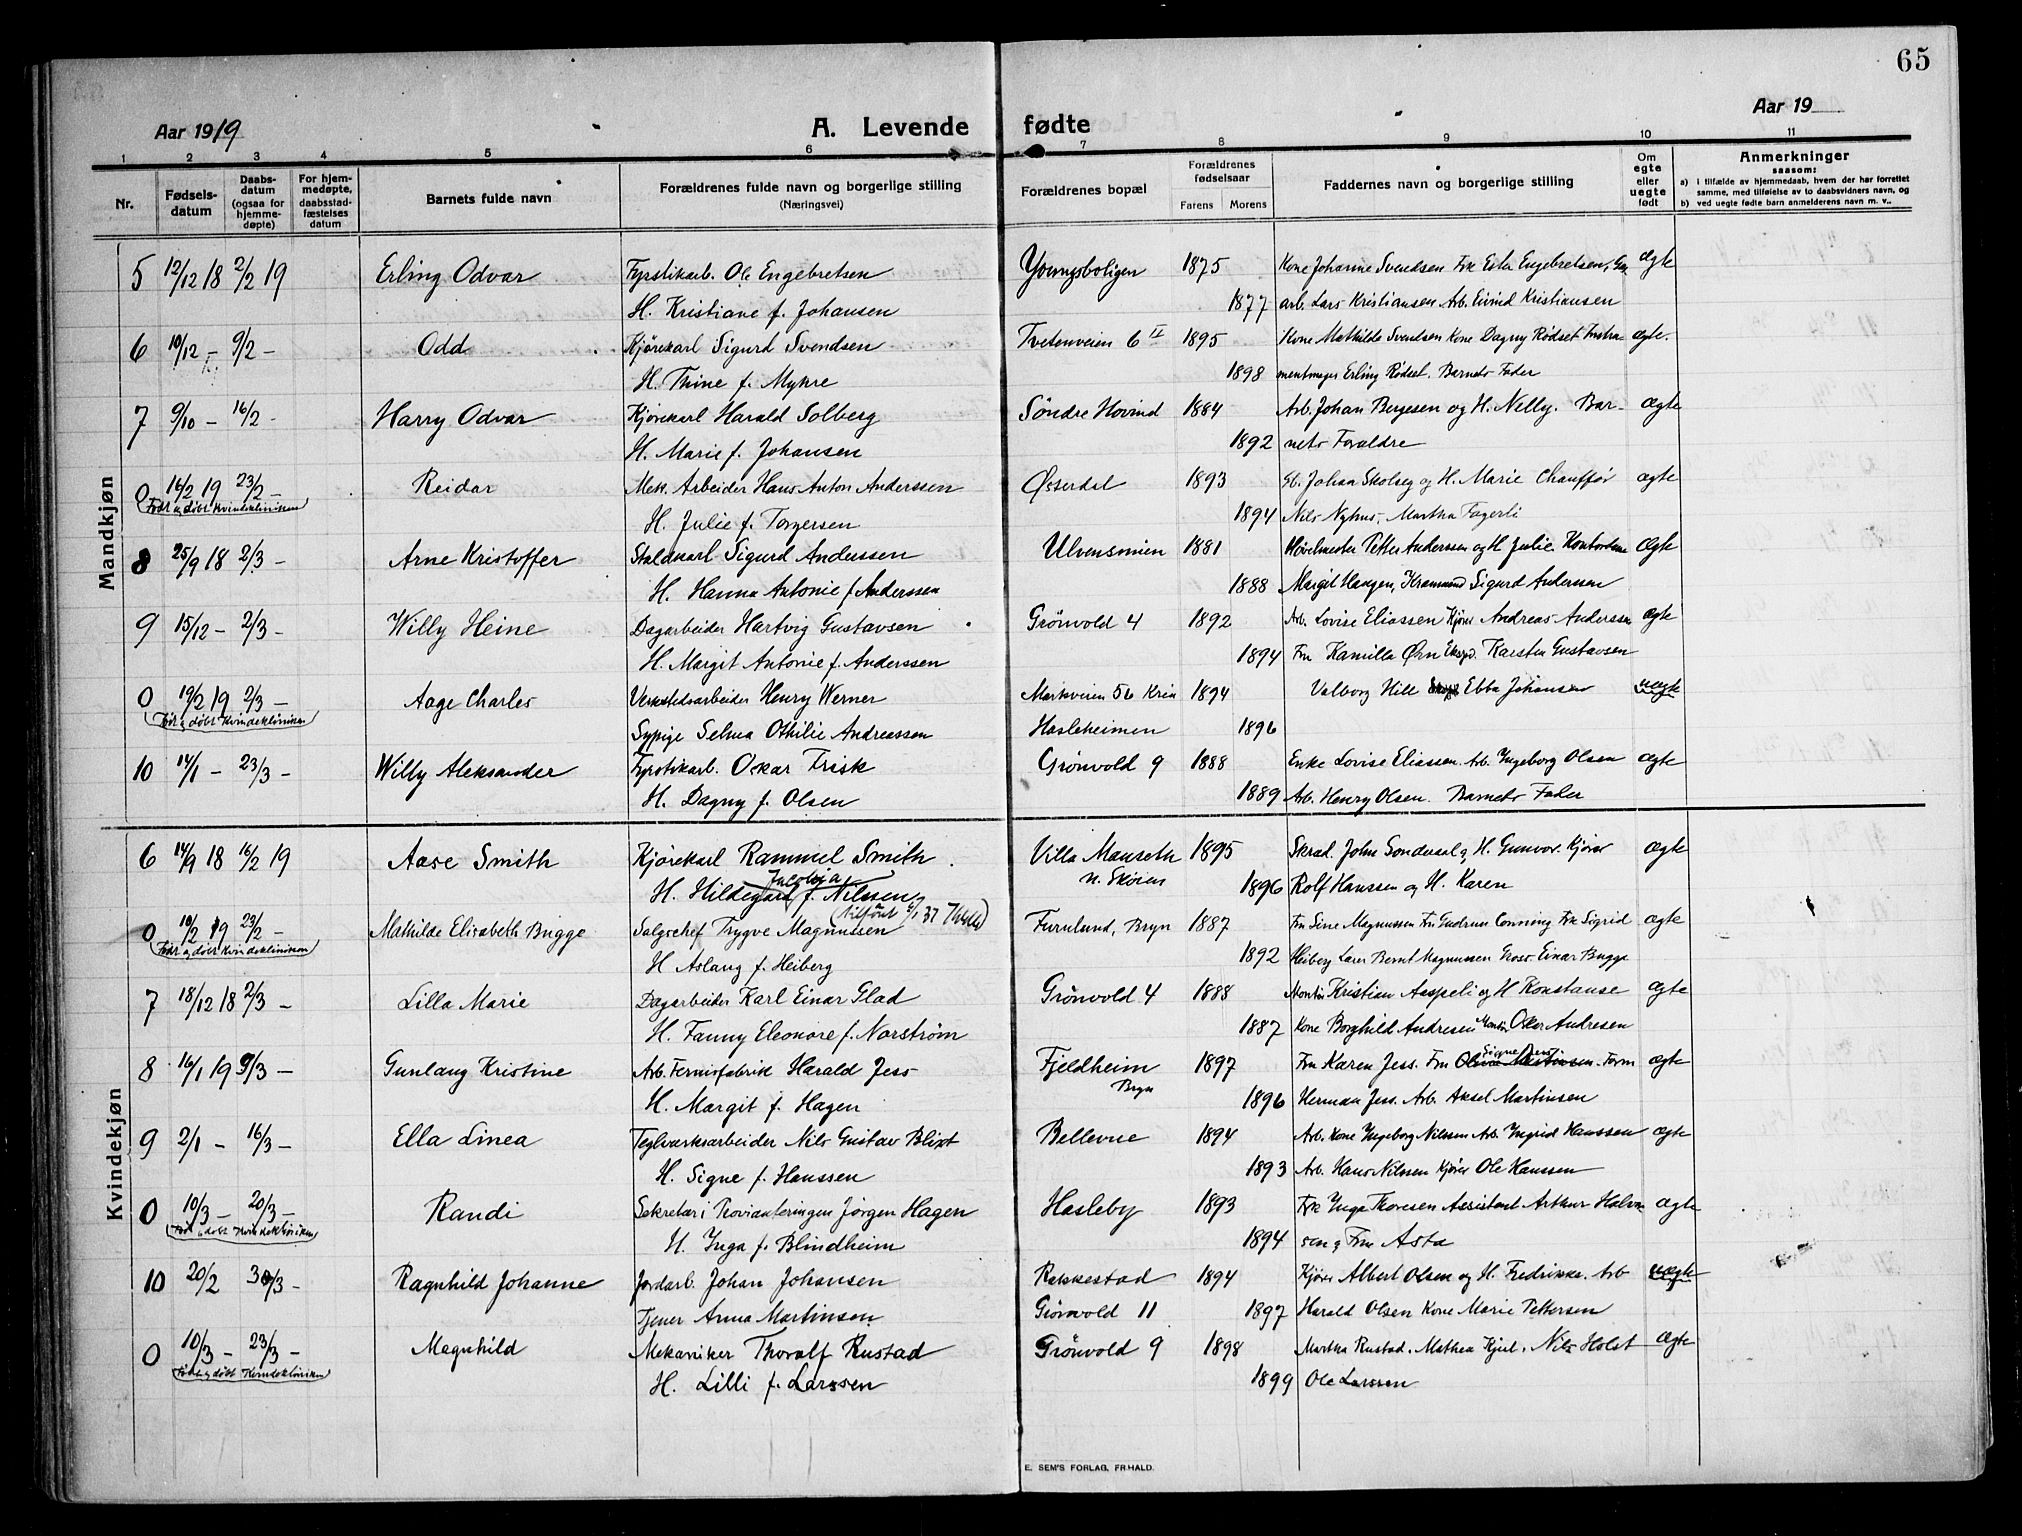 65
Aar 1919
A. Levende fødte
Aar 19
1 2 3 4 5 6 7 8 9 10 11
Nr.
Fødsels-
datum
Daabs-
datum
(ogsaa for
hjemme-
døpte)
For hjem-
medøpte,
daabsstad-
fæstelses
datum
Barnets fulde navn
Forældrenes fulde navn og borgerlige stilling
(Næringsvei)
Forældrenes bopæl
Forældrenes
fødselsaar
Farens Morens
Faddernes navn og borgerlige stilling
Om
egte
eller
uegte
født
Anmerkninger
saasom:
a) i tilfælde av hjemmedaab, hvem der har forrettet
samme, med tilføielse av to daabsvidners navn, og
b) ved uegte fødte barn anmelderens navn m. v..
Mandkjøn
5 12/12 18 2/2 19 Erling Odvar Fyrstikarb. Ole Engebretsen Youngsboligen 1875 Kone Johanne Svendsen Frk Ester Engebretsen, ægte
H. Kristiane f. Johansen 1877 arb. Lars Kristiansen Arb. Eivind Kristiansen
6 10/12 - 9/2 - Odd Kjørekarl Sigurd Svendsen Tvetenveien 6 II 1895 Kone Mathilde Svendsen Kone Dagny Rødset Instru- ægte.
H. Thine f. Myhre 1898 mentmager Erling Rødset. Barnets Fader
7 9/10 - 16/2 - Harry Odvar Kjørekarl Harald Solberg Søndre Hovind 1884 Arb. Johan Bergesen og H. Nelly. Bar- ægte
H. Marie f. Johansen 1892 nets Forældre
0 16/2 19 23/2 - Reidar Mek. Arbeider Hans Anton Anderssen Østerdal 1893 Johan Skolseg og H. Marie Chauffør ægte
Født og døbt Kvindeklinikken
H. Julie f. Torgersen 1894 Nils Nyhus, Martha Fagerli
8 25/9 18 2/3 - Arne Kristoffer Staldkarl Sigurd Anderssen Ulvensmien 1881 Høvelmester Petter Anderssen og H Julie. ægte
H. Hanna Antonie f Anderssen 1888 Margit Haugen, Sigurd Anderssen
9 15/12 - 2/3 - Willy Heine Dagarbeider Hartvig Gustavsen Grønvold 4 1892 Arb. Lovise Eliassen Kjører Andreas Anderssen ægte
H. Margit Antonie f. Anderssen 1894 Fru Kamilla Ørn Eksped. Karsten Gustavsen
0 19/2 19 2/3 - Aage Charles Verkstedsarbeider Henry Werner Markveien 56 Kria 1894 Valborg Hill Ebba Johansen uægte
Født og døbt Kvindeklinikken
Sypige Selma Othilie Andreassen Hasleheimen 1896
10 14/1 - 23/3 - Willy Aleksander Fyrstikarb. Oskar Frisk Grønvold 9 1888 Enke Lovise Eliassen. Arb. Ingeborg Olsen ægte
H. Dagny f. Olsen 1889 Arb. Henry Olsen. Barnets Fader
Kvindekjøn
6 14/9 18 16/2 19 Aase Smith Kjørekarl Rammel Smith Villa Manseth 1895 Skræd. John Sonderaal og H. Gunvor. Kjører ægte
Jacobja
H. Hildegard f. Nilssen n. Skøien 1896 Rolf Hanssen og H. Karen
0 19/2 19 23/2 - Mathilde Elisabeth Bugge Salgschef Trygve Magnussen Furulund, Bryn 1887 Fru Sine Magnussen Fru Gudrun Conning Frk Sigrid ægte
Født og døbt Kvindeklinikken
H Aslaug f. Heiberg 1892 Heiberg Lærer Bernt Magnussen Gross. Einar Bugge
7 18/12 18 2/3 - Lilla Marie Dagarbeider Karl Einar Glad Grønvold 4 1888 Montør Kristian Aaspeli og H Konstanse ægte
H. Fanny Eleonore f. Norstrøm 1887 Kone Borghild Andresen Montør Oskar Andresen
8 16/1 19 9/3 - Gunlaug Kristine Arb. Fernisfabrik Harald Jess Fjeldheim 1897 Fru Karen Jess. Fru Signe Form ægte
H. Margit f. Hagen Bryn 1896 Herman Jess. Arb. Aksel Martinsen
9 2/1 - 16/3 - Ella Linea Teglværksarbeider Nils Gustav Blixt Bellevue 1894 Arb. Kone Ingeborg Nilssen Arb. Ingrid Hanssen ægte
H. Signe f. Hanssen 1893 Arb. Hans Nilssen Kjører Ole Hanssen
0 10/3 - 20/3 - Randi Sekretær i Provianteringen Jørgen Hagen Hasleby 1893 Frk Inga Thoresen Assistent Arthur Halvor ægte
Født og døbt Kvindeklinikken
H. Inga f. Blindheim 1894 sen og Fru Asta
10 20/2 30/3 - Ragnhild Johanne Jordarb. Johan Johansen Rakkestad 1894 Kjører Albert Olsen og H. Fredrikke. Arb uægte
Tjener Anna Martinsen Grønvold 11 1897 Harald Olsen Kone Marie Pettersen
0 10/3 - 23/3 - Magnhild Mekaniker Thoralf Rustad Grønvold 9 1898 Martha Rustad. Mathea Kjul. Nils Holst ægte
Født og døbt Kvindeklinikken
H. Lilli f. Larssen 1899 Ole Larssen
E. SEM'S FORLAG, FR.HALD.